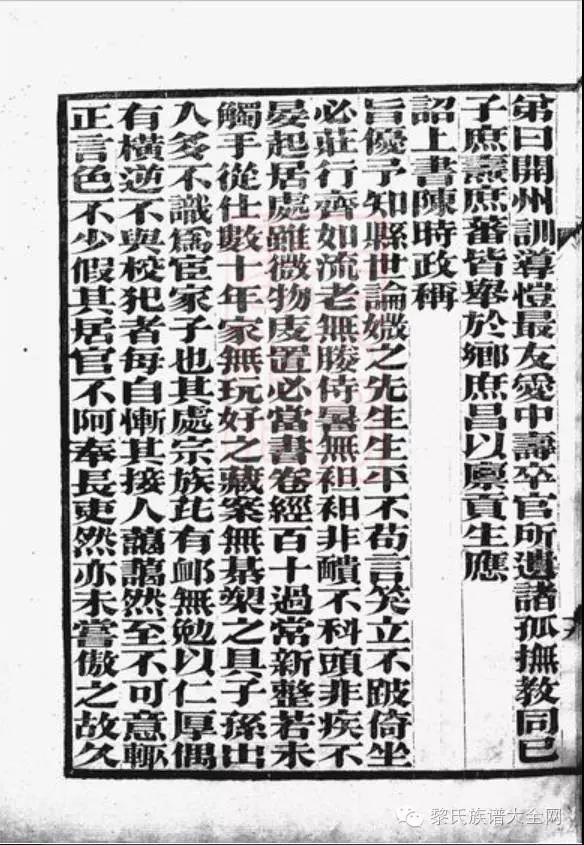 弟曰開州訓導愷最友愛中壽卒官所遺諸孤撫教同己
子庶燾庶蕃皆舉於鄉庶昌以廪貢生應
詔上書陳時政稱
旨優予知縣世論媺之先生生平不苟言笑立不跛倚坐
必莊行齊如流老無媵侍暑無袒裼非醻不科頭非疾不
晏起居處雖微物庋置必當書卷經百十過常新整若未
觸手從仕數十年家無玩好之藏案無棊槊之具子孫出
入多不識爲宦家子也其處宗族比有卹無勉以仁厚偶
有橫逆不與校犯者每自慚其接人藹藹然至不可意輒
正言色不少假其居官不阿奉長吏然亦未嘗傲之故久
黎氏族谱大全网